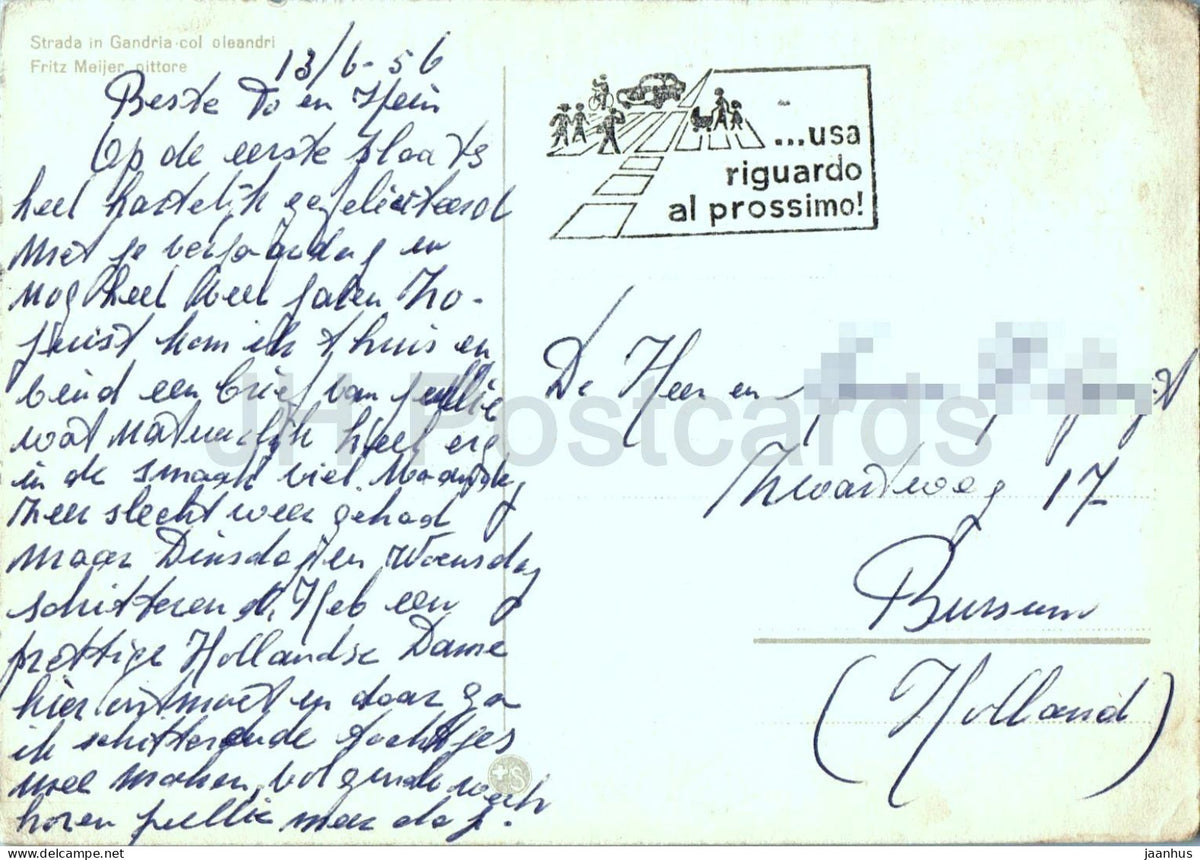 Strada in Gandria col oleandri
Fritz Meijer, pittore
13/6-56
Beste Do en Hein
Op de eerste plaats
heel hartelijk gefeliciteerd
met je verjaardag en
nog heel veel jaren Zo-
juist kom ik thuis en
vind een brief van jullie
wat natuurlijk heel erg
in de smaak viel. Maandag
zeer slecht weer gehad
maar Dinsdag en Woensdag
schitterend. Heb een
prettige Hollandse Dame
hier ontmoet en daar ga
ik schitterende tochtjes
mee maken, volgende week
horen jullie meer dag!
...usa
riguardo
al prossimo!
De Heer en
Zwarteweg 17
Bussum
(Holland)
JH Postcards
+S
www.delcampe.net
jaanhus